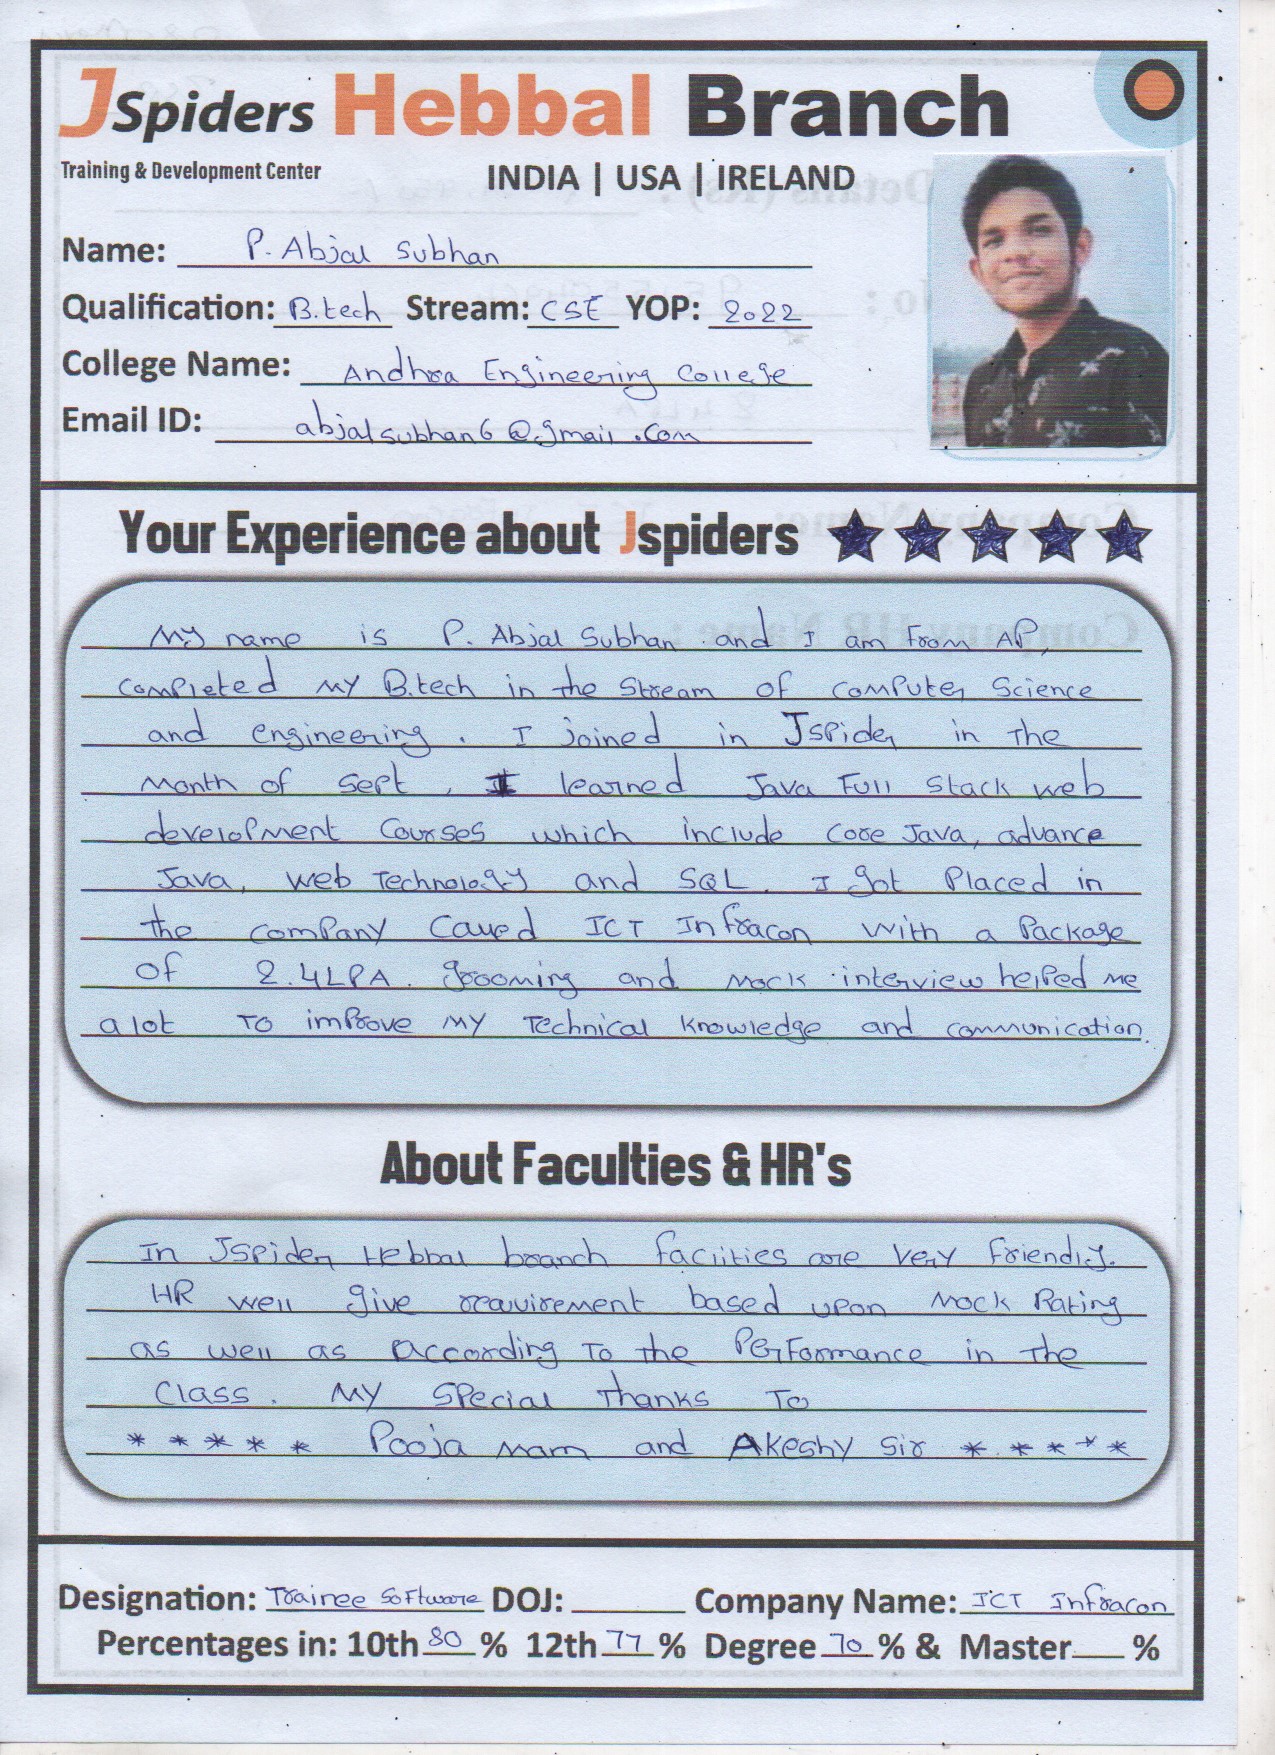 JSpiders Hebbal Branch
Training & Development Center
INDIA | USA | IRELAND
Name: P. Abjal Subhan
Qualification: B.tech Stream: CSE YOP: 2022
College Name: Andhra Engineering College
Email ID: abjalsubhan6@gmail.com
Your Experience about Jspiders
My name is P. Abjal Subhan and I am from AP,
completed my B.tech in the Stream of computer Science
and engineering. I joined in Jspider in the
month of sept, I learned Java Full Stack web
development Courses which include core Java, advance
Java, web Technology and SQL. I got Placed in
the company Called ICT Infracon with a Package
of 2.4LPA. grooming and mock interview helped me
a lot To improve my Technical knowledge and communication.
About Faculties & HR's
In Jspider Hebbal branch facilities are very friendly.
HR well give requirement based upon mock Rating
as well as according To the Performance in the
Class. My special Thanks To
* * * * * Pooja mam and Akeshy Sir * * * * *
Designation: Trainee Software DOJ: Company Name: ICT Infracon
Percentages in: 10th 80 % 12th 77 % Degree 70 % & Master %